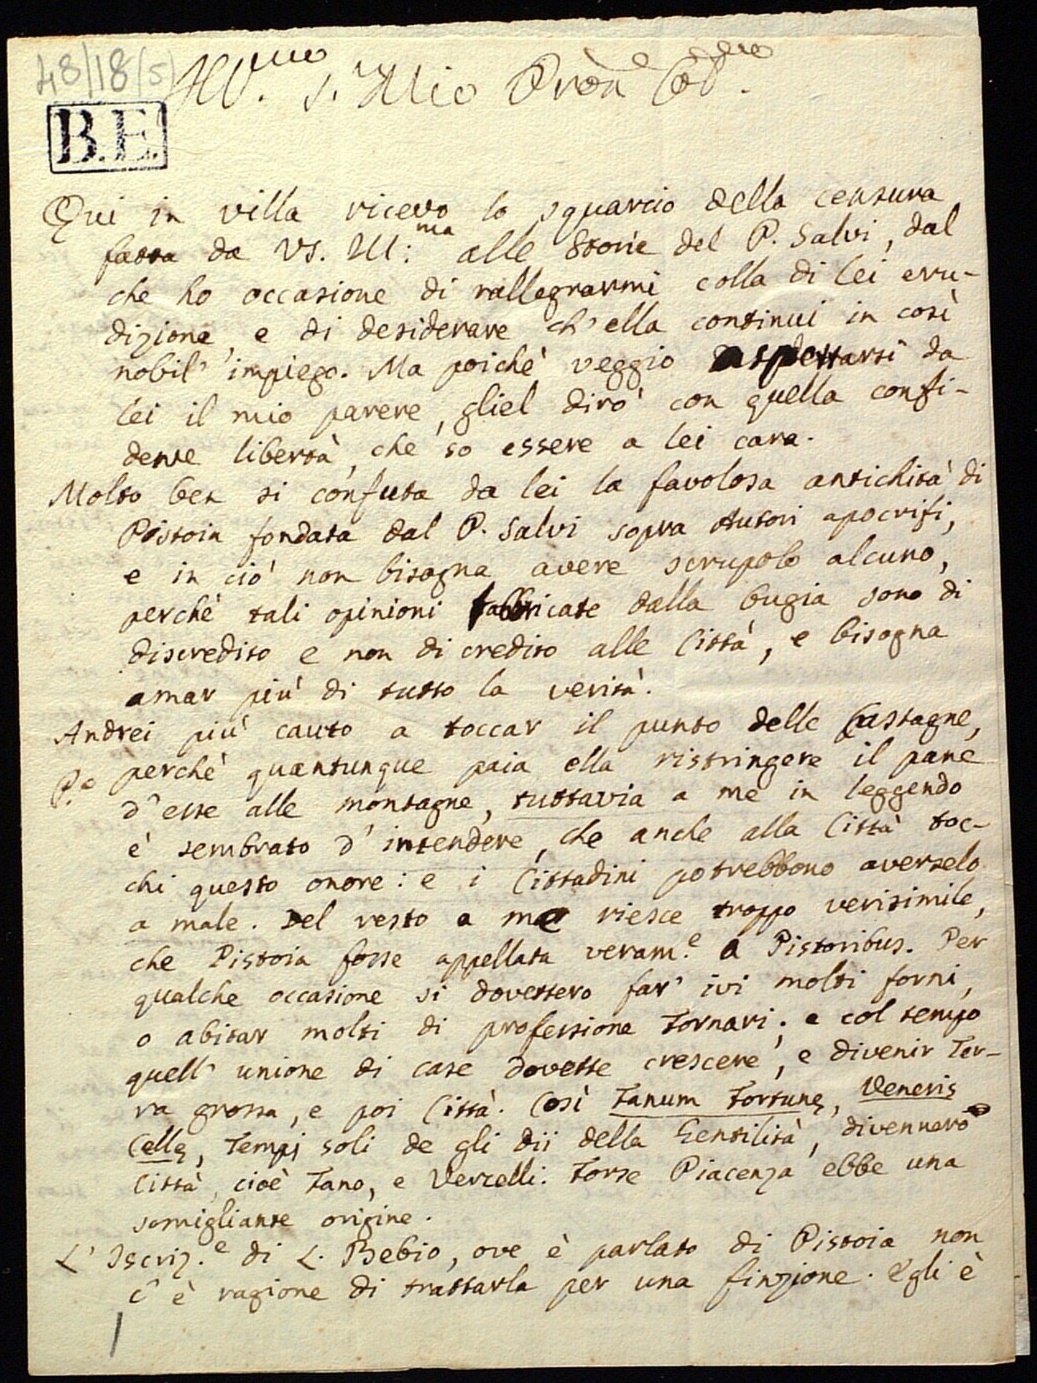 48/18(5)
Ill.mo S. Mio Pròn e Cōl.mo
B.E.
Qui in villa ricevo lo squarcio della censura
fatta da VS. Ill:ma alle Storie del P. Salvi, dal
che ho occasione di rallegrarmi colla di lei eru-
dizione, e di desiderare ch'ella continui in così
nobil' impiego. Ma poichè veggio aspettarsi da
lei il mio parere, gliel dirò con quella confi-
dente libertà, che so essere a lei cara.
Molto ben si confuta da lei la favolosa antichità di
Pistoia fondata dal P. Salvi sopra Autori apocrifi,
e in ciò non bisogna avere scrupolo alcuno,
perchè tali opinioni fabbricate dalla bugia sono di
discredito e non di credito alle Città, e bisogna
amar più di tutto la verità.
Andrei più cauto a toccar il punto delle Castagne,
P.e perchè quantunque paia ella ristringere il pane
d'esse alle montagne, tuttavia a me in leggendo
è sembrato d'intendere, che anche alla Città toc-
chi questo onore: e i Cittadini potrebbono averselo
a male. Del resto a me riesce troppo verisimile,
che Pistoia fosse appellata veram.e a Pistoribus. Per
qualche occasione si dovettero far' ivi molti forni,
o abitar molti di professione Fornari; e col tempo
quell' unione di case dovette crescere, e divenir Ter-
ra grossa, e poi Città. Così Fanum Fortunę, Veneris
Cellę, Tempj soli de gli dii della Gentilità, divennero
Città, cioè Fano, e Vercelli. Forse Piacenza ebbe una
somigliante origine.
L' Iscriz.e di L. Bebio, ove è parlato di Pistoia, non
c' è ragione di trattarla per una finzione. Egli è
1